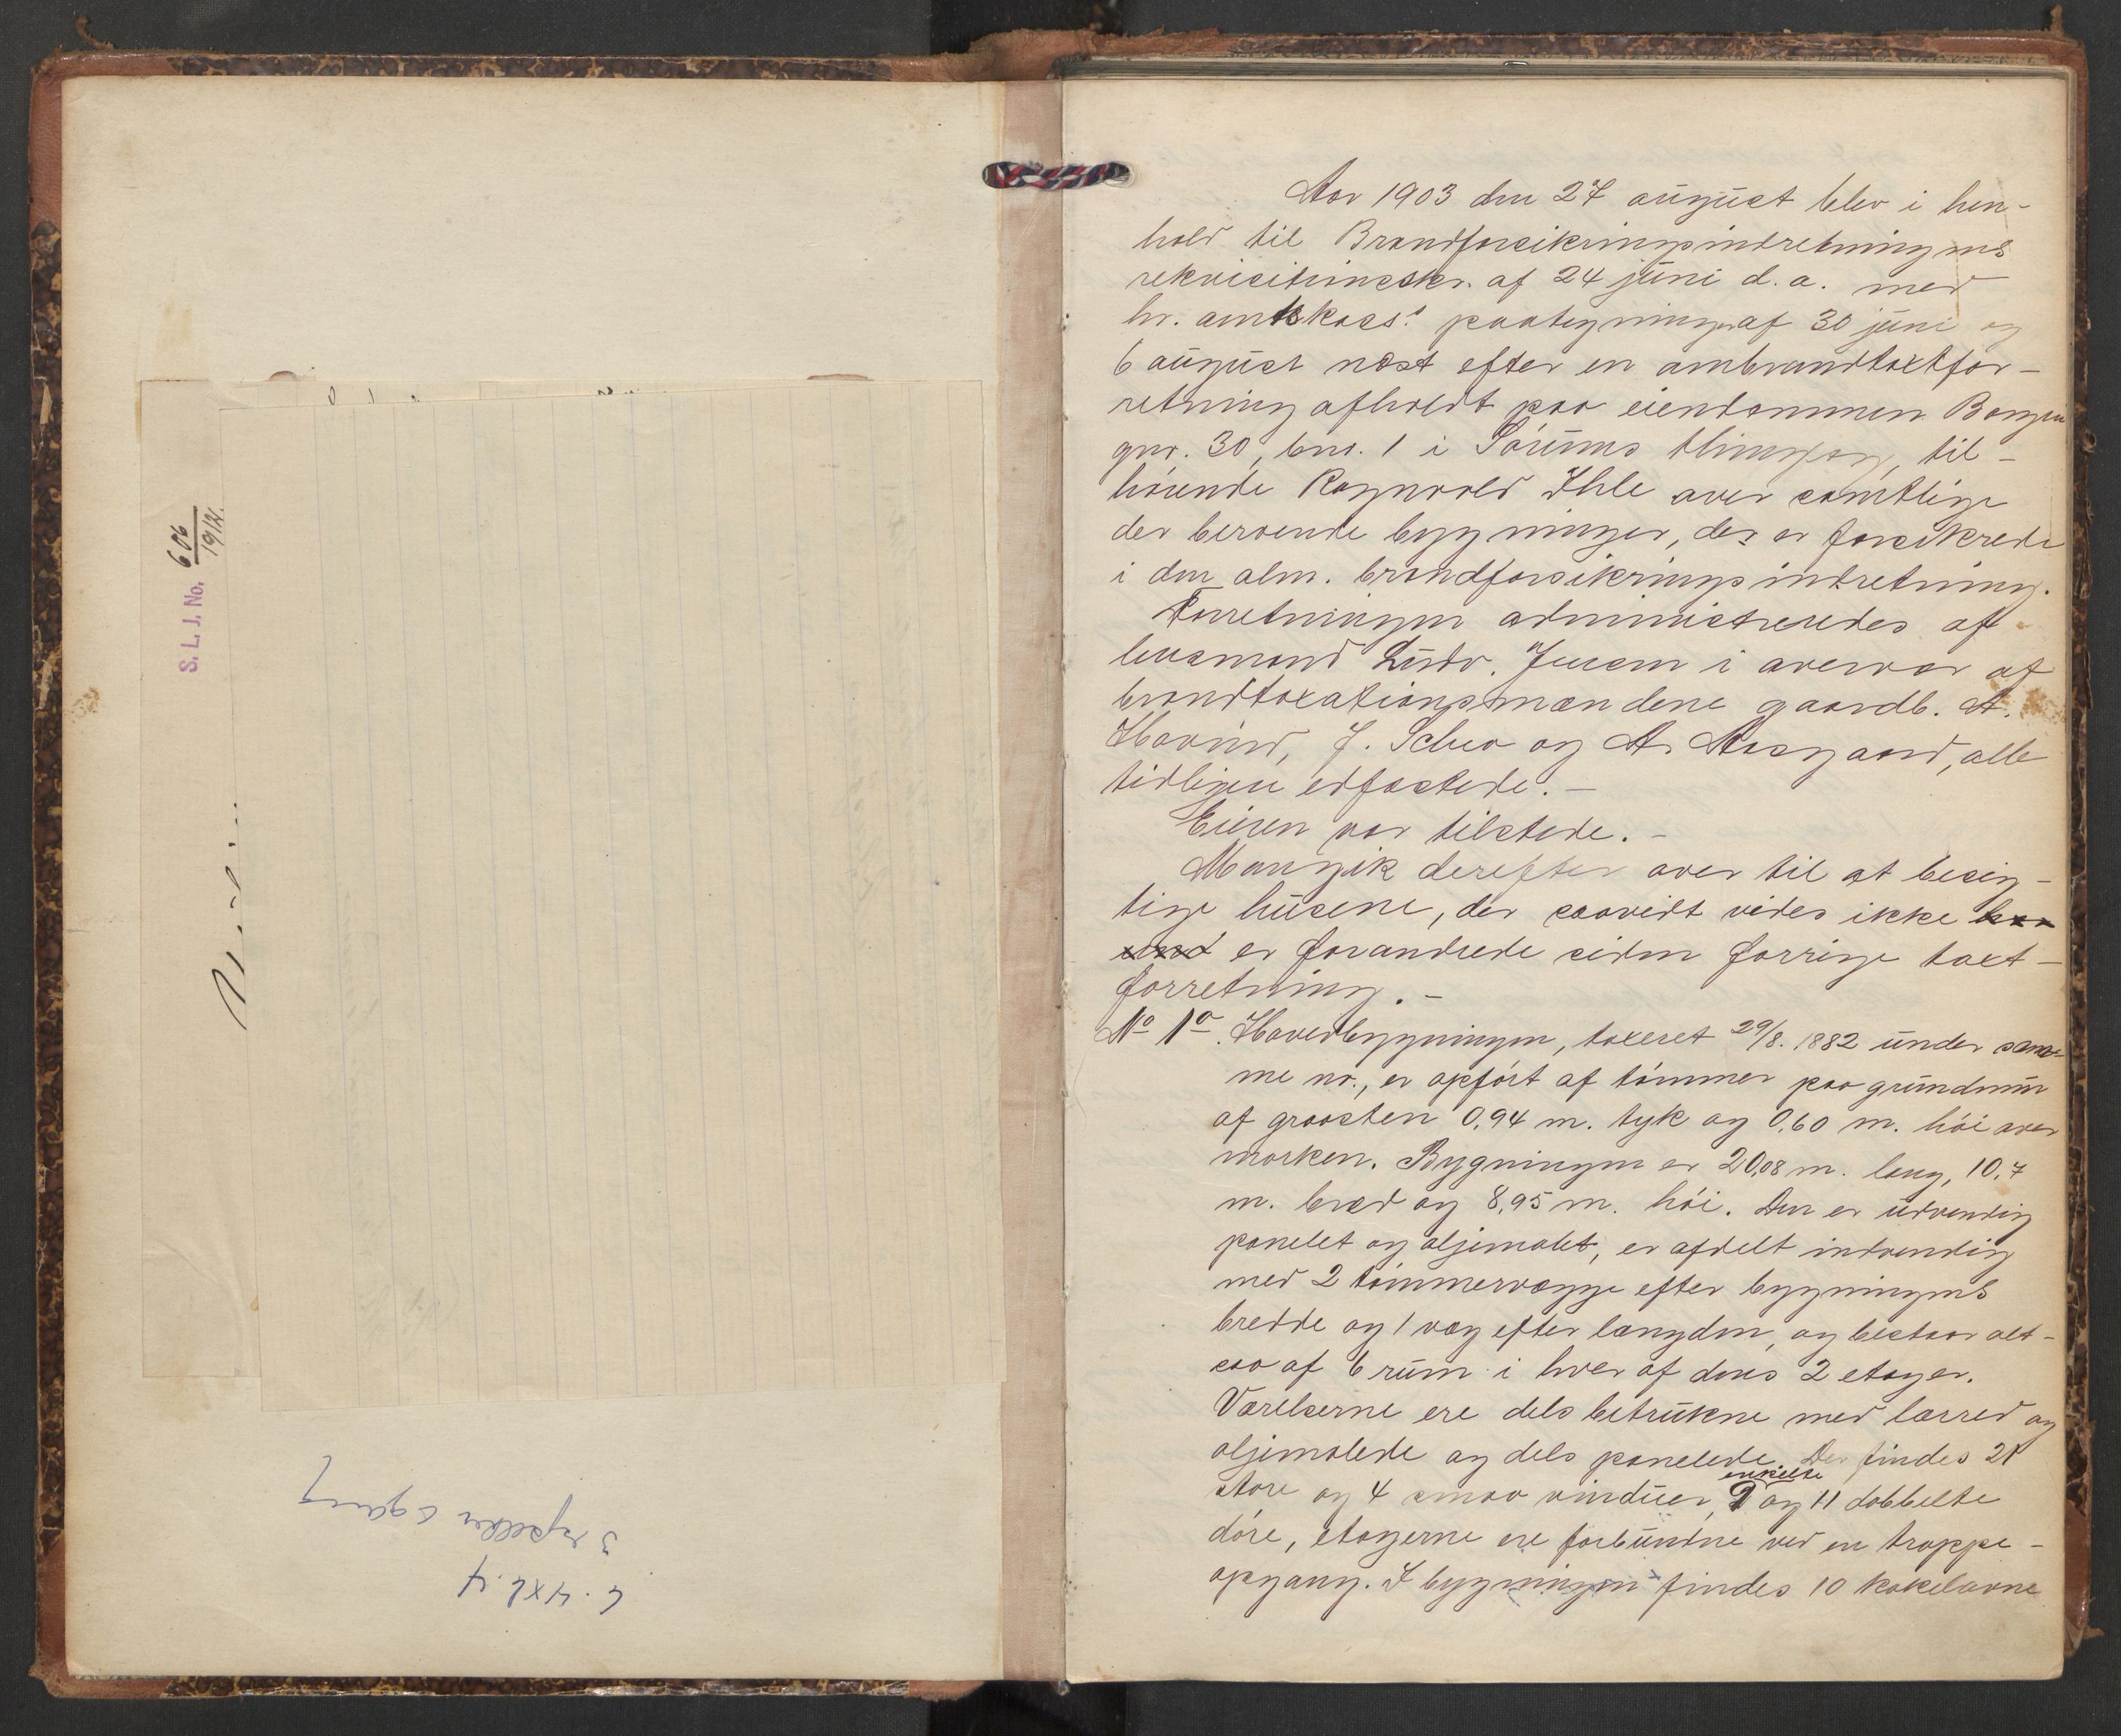 S. L. J. No. 606
1912.
Aar 1903 den 27 august blev i hen-
hold til Brandforsikringsindretningens
rekvisitionsskr. af 24 juni d. a. med
hr. amtskass.s paategninger af 30 juni og
6 august næst efter en ombrandtaxtfor-
retning afholdt paa eiendommen Bangen
gnr. 30, bnr. 1 i Sörums thinglag, til-
hörende Ragnvald Ihle over samtlige
der beroende bygninger, der er forsikrede
i den alm. brandforsikringsindretning.
Forretningen administreredes af
lensmand Ludv. Jensen i overvær af
brandtaxationsmændene gaardb. A.
Hovind, J. Schea og A. Aasgaard, alle
tidligere edfæstede. -
Eieren var tilstede. -
Man gik derefter over til at besig-
tige husene, der saavidt vides ikke
er forandrede siden forrige taxt-
forretning. -
No 1a. Hovedbygningen, taxeret 29/8. 1882 under sam-
me nr., er opfört af tömmer paa grundmur
af graasten 0,94 m. tyk og 0,60 m. höi over
marken. Bygningen er 20,08 m. lang, 10,7
m. bred og 8,95 m. höi. Den er udvendig
panelet og oljemalet, er afdelt indvendig
med 2 tömmervægge efter bygningens
bredde og 1 væg efter længden, og bestaar alt-
saa af 6 rum i hver af dens 2 etager.
Værelserne ere dels betrukne med lærred og
oljemalede og dels panelede. Der findes 21
store og 4 smaa vinduer, 9 enkelte og 11 dobbelte
döre, etagerne ere forbundne ved en trappe-
opgang. I bygningen findes 10 kakelovne